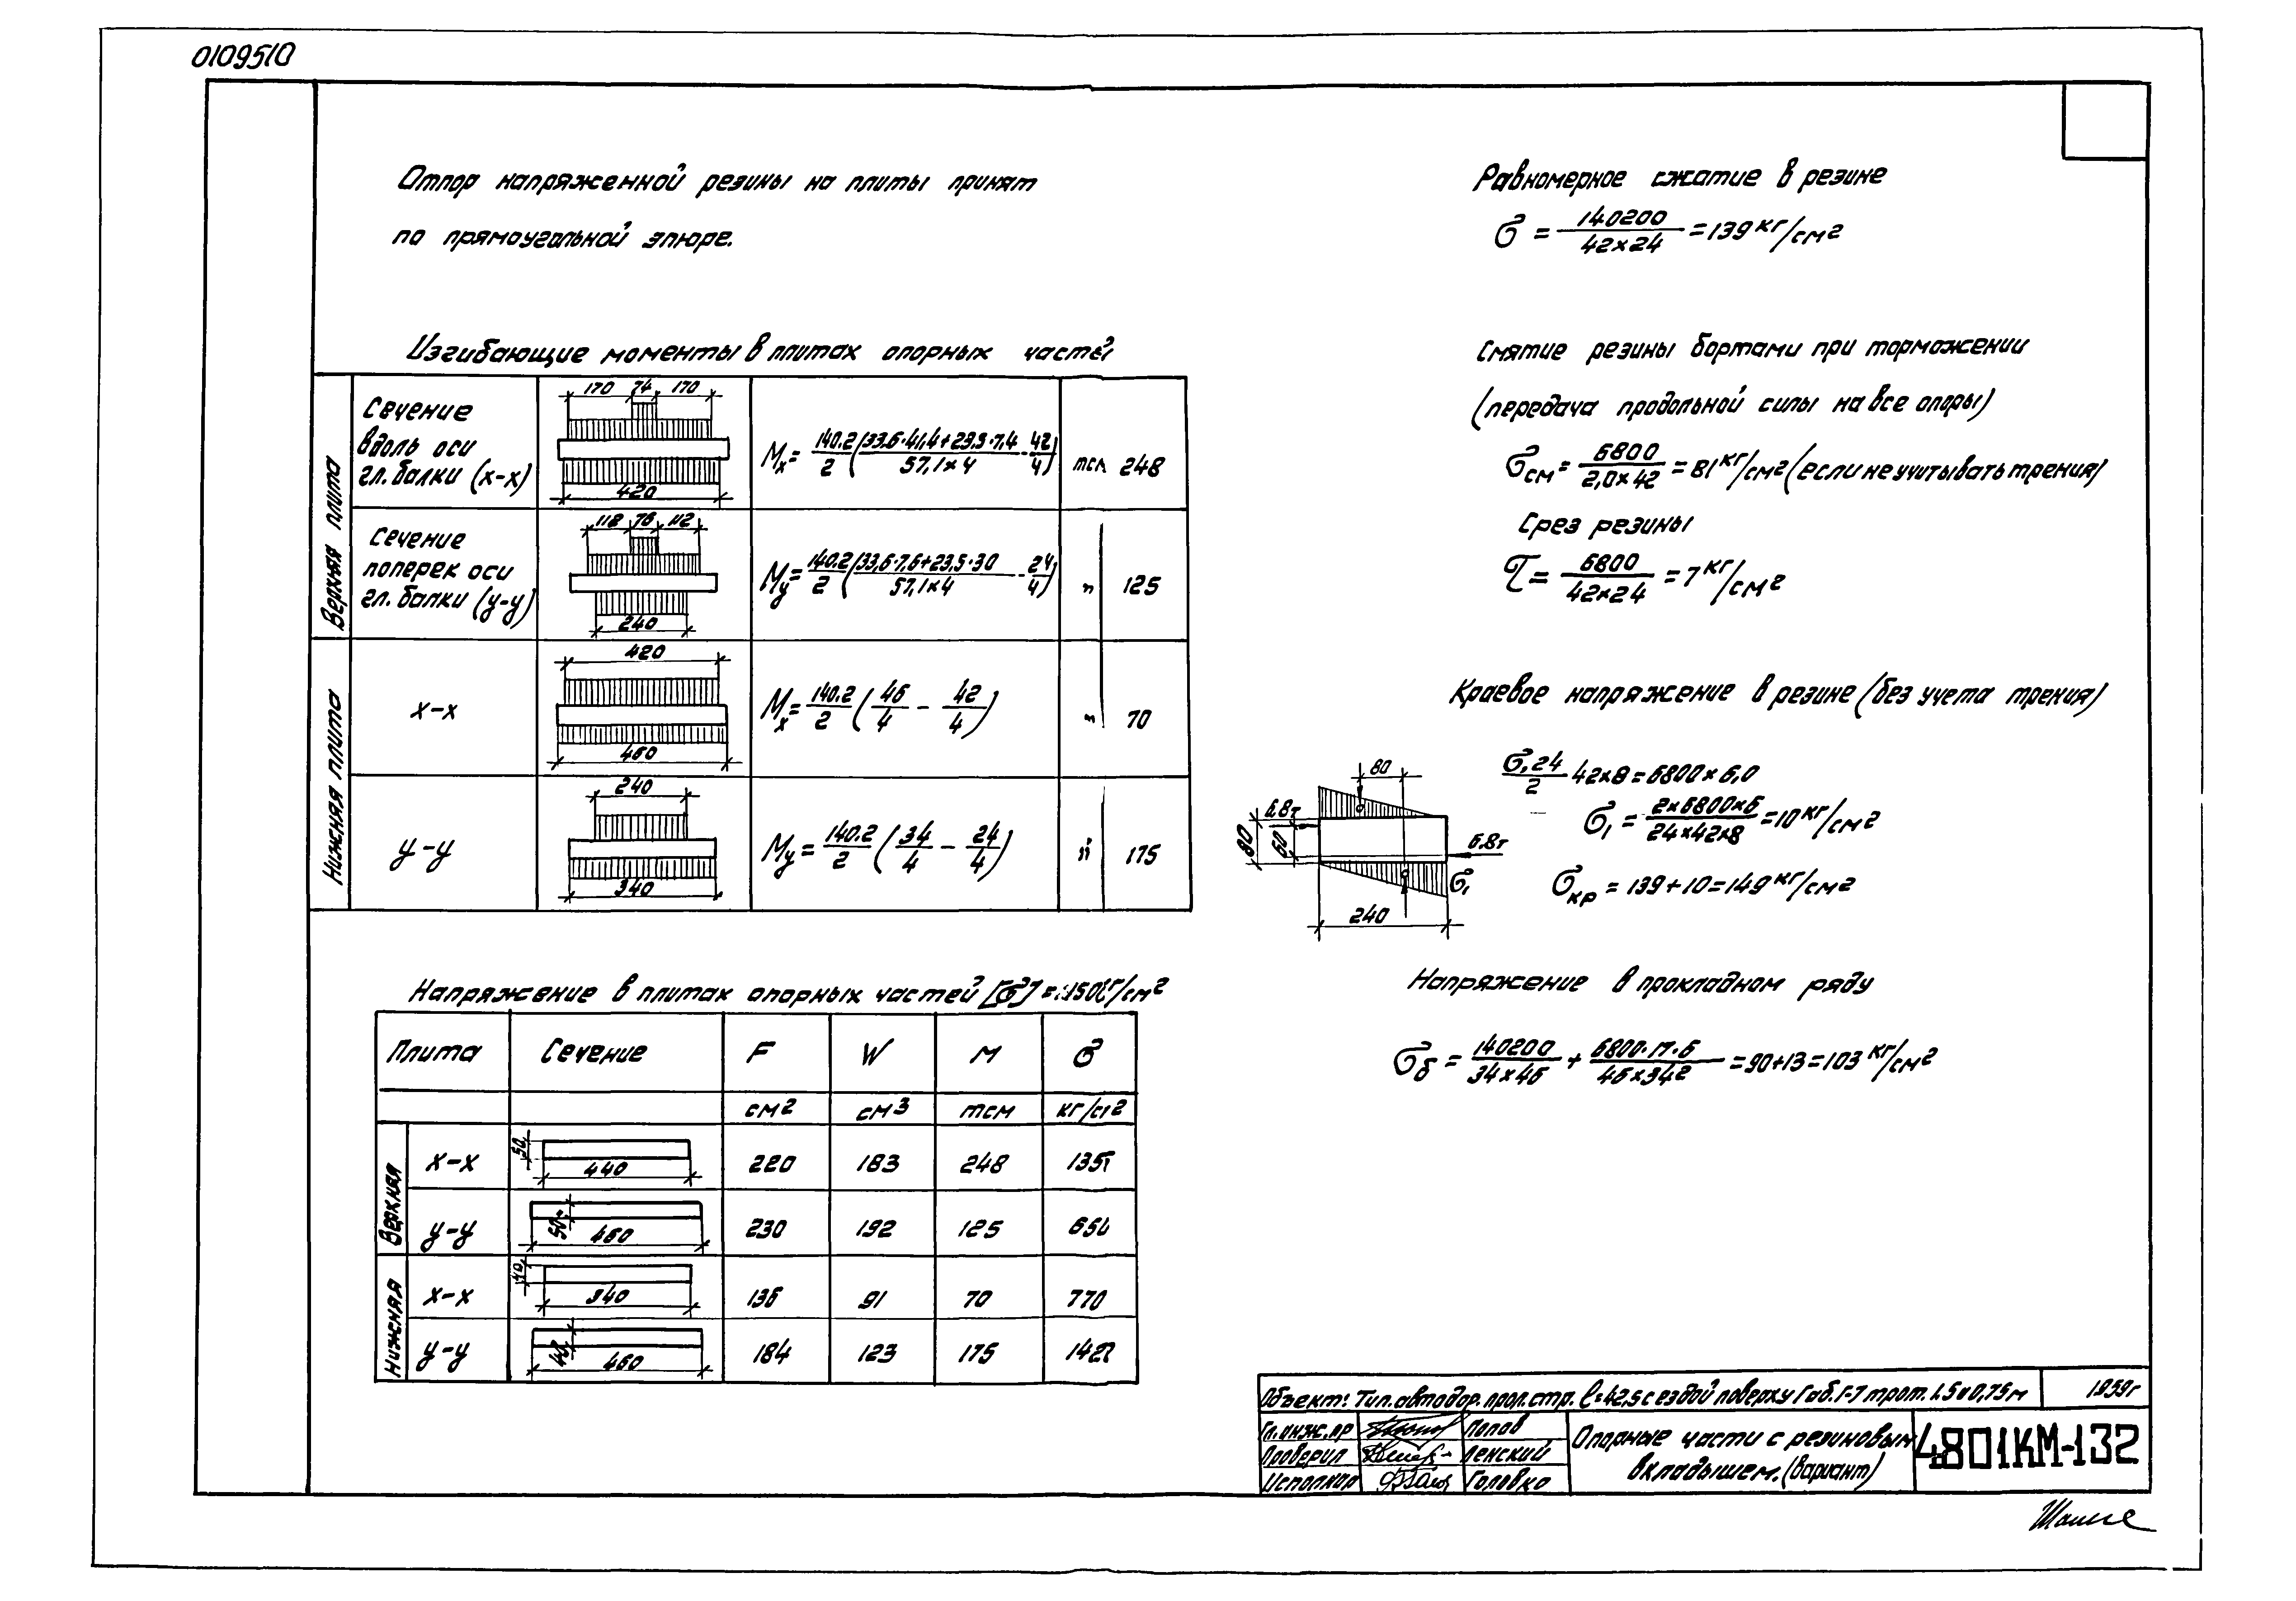 0109510
Отпор напряженной резины на плиты принят
по прямоугольной эпюре.
Изгибающие моменты в плитах опорных частей
Верхняя плита
Сечение
вдоль оси
гл. балки (x-x)
170 74 170
420
Mx = 140.2/2 (33,6·41,4+23,5·7,4/57,1×4 - 42/4) тсм 248
Сечение
поперек оси
гл. балки (y-y)
118 76 112
240
My = 140.2/2 (33,6·7,6+23,5·30/57,1×4 - 24/4) " 125
Нижняя плита
x-x
420
460
Mx = 140.2/2 (46/4 - 42/4) " 70
y-y
240
340
My = 140.2/2 (34/4 - 24/4) " 175
Напряжение в плитах опорных частей [σ] = кг/см2
Плита Сечение F W M σ
см2 см3 тсм кг/см2
Верхняя
x-x 50 440 220 183 248 1355
y-y 50 460 230 192 125 650
Нижняя
x-x 40 340 136 91 70 770
y-y 40 460 184 123 175 1422
Равномерное сжатие в резине
σ = 140200/42×24 = 139 кг/см2
Смятие резины бортами при торможении
(передача продольной силы на все опоры)
σсм = 6800/2,0×42 = 81 кг/см2 (если не учитывать трения)
Срез резины
τ = 6800/42×24 = 7 кг/см2
Краевое напряжение в резине (без учета трения)
σ1 24/2 42×8 = 6800×6,0
σ1 = 2×6800×6/24×42×8 = 10 кг/см2
σкр = 139+10 = 149 кг/см2
80
6.8т
80
60
6.8т
σ1
240
Напряжение в прокладном ряду
σб = 140200/34×46 + 6800·17·6/46×342 = 90+13 = 103 кг/см2
Объект: Тип. автодор. прол. стр. ℓ=42,5 с ездой поверху Габ. Г-7 трот. 1.5 и 0,75 м 1959г
Гл. инж. пр Попов
Проверил Ленский
Исполнил Головко
Опорные части с резиновым
вкладышем. (вариант)
4801КМ-132